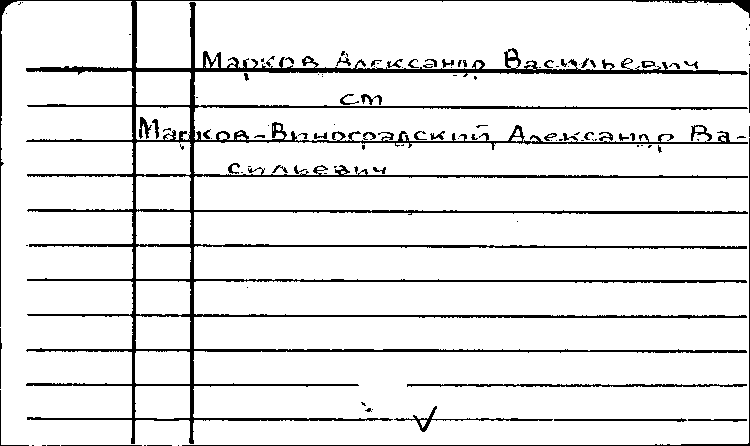 Марков Александр Васильевич
см
Марков-Виноградский, Александр Ва-
сильевич